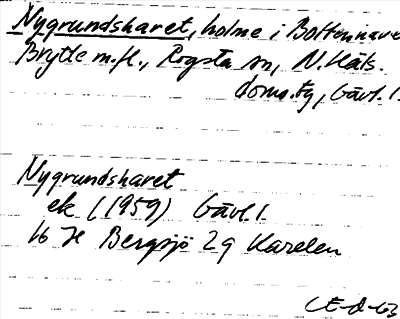 Nygrundsharet, holme i Bottenhave
Brytte m.fl., Rogsta sn, N. Häls.
doms.tg, Gävl. l.
Nygrundsharet
ek (1959) Gävl. l.
16 H Bergsjö 2g Karelen
CE-d-63